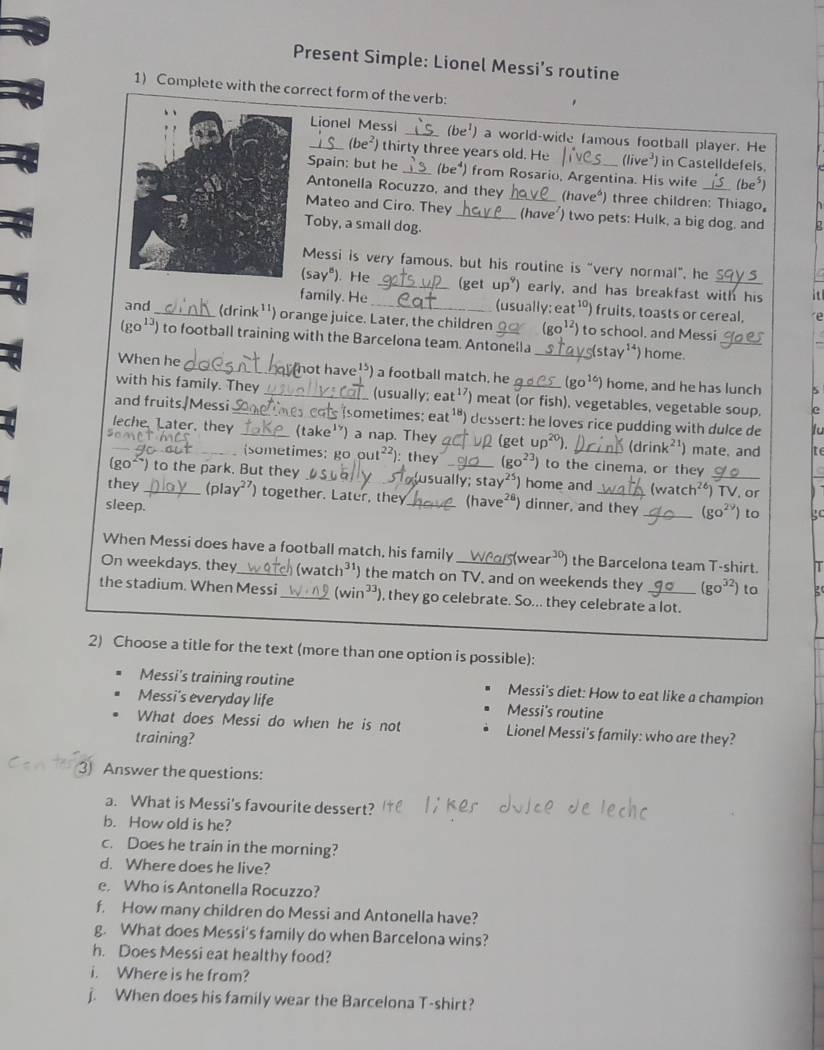 Present Simple: Lionel Messi's routine
1) Complete with the correct form of the verb:
Lionel Messi is (be¹) a world-wide famous football player. He
is (be²) thirty three years old. He lives (live³) in Castelldefels,
Spain; but he is (be⁴) from Rosario, Argentina. His wife is (be⁵)
Antonella Rocuzzo, and they have (have⁶) three children: Thiago,
Mateo and Ciro. They have (have⁷) two pets: Hulk, a big dog, and
Toby, a small dog.
Messi is very famous, but his routine is "very normal", he says
(say⁸). He gets up (get up⁹) early, and has breakfast with his
family. He eat (usually; eat¹⁰) fruits, toasts or cereal,
and dink (drink¹¹) orange juice. Later, the children go (go¹²) to school, and Messi goes
(go¹³) to football training with the Barcelona team. Antonella stays (stay¹⁴) home.
When he doesn't have (not have¹⁵) a football match, he goes (go¹⁶) home, and he has lunch
with his family. They usually eat (usually; eat¹⁷) meat (or fish), vegetables, vegetable soup,
and fruits. Messi sometimes eats (sometimes; eat¹⁸) dessert: he loves rice pudding with dulce de
leche. Later, they take (take¹⁹) a nap. They get up (get up²⁰), Drink (drink²¹) mate, and
sometimes go out (sometimes; go out²²): they go (go²³) to the cinema, or they go
(go²⁴) to the park. But they usually stay (usually; stay²⁵) home and wath (watch²⁶) TV, or
they play (play²⁷) together. Later, they have (have²⁸) dinner, and they go (go²⁹) to
sleep.
When Messi does have a football match, his family wears (wear³⁰) the Barcelona team T-shirt.
On weekdays, they watch (watch³¹) the match on TV, and on weekends they go (go³²) to
the stadium. When Messi wing (win³³), they go celebrate. So... they celebrate a lot.
2) Choose a title for the text (more than one option is possible):
▪ Messi's training routine
▪ Messi's everyday life
▪ What does Messi do when he is not
training?
▪ Messi's diet: How to eat like a champion
▪ Messi's routine
▪ Lionel Messi's family: who are they?
3) Answer the questions:
a. What is Messi's favourite dessert? He likes dulce de leche
b. How old is he?
c. Does he train in the morning?
d. Where does he live?
e. Who is Antonella Rocuzzo?
f. How many children do Messi and Antonella have?
g. What does Messi's family do when Barcelona wins?
h. Does Messi eat healthy food?
i. Where is he from?
j. When does his family wear the Barcelona T-shirt?